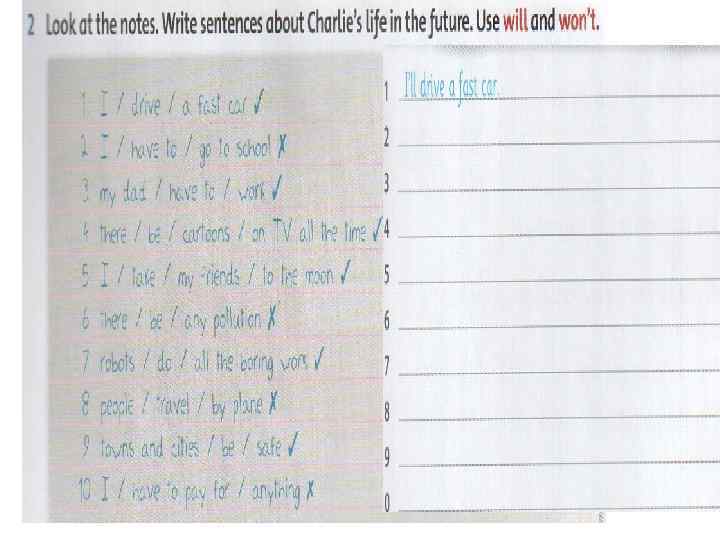 2 Look at the notes. Write sentences about Charlie's life in the future. Use will and won't.
1 I / drive / a fast car ✓
2 I / have to / go to school ✗
3 my dad / have to / work ✓
4 there / be / cartoons / on TV all the time ✓
5 I / take / my friends / to the moon ✓
6 there / be / any pollution ✗
7 robots / do / all the boring work ✓
8 people / travel / by plane ✗
9 towns and cities / be / safe ✓
10 I / have to pay for / anything ✗
1 I'll drive a fast car.
2
3
4
5
6
7
8
9
0